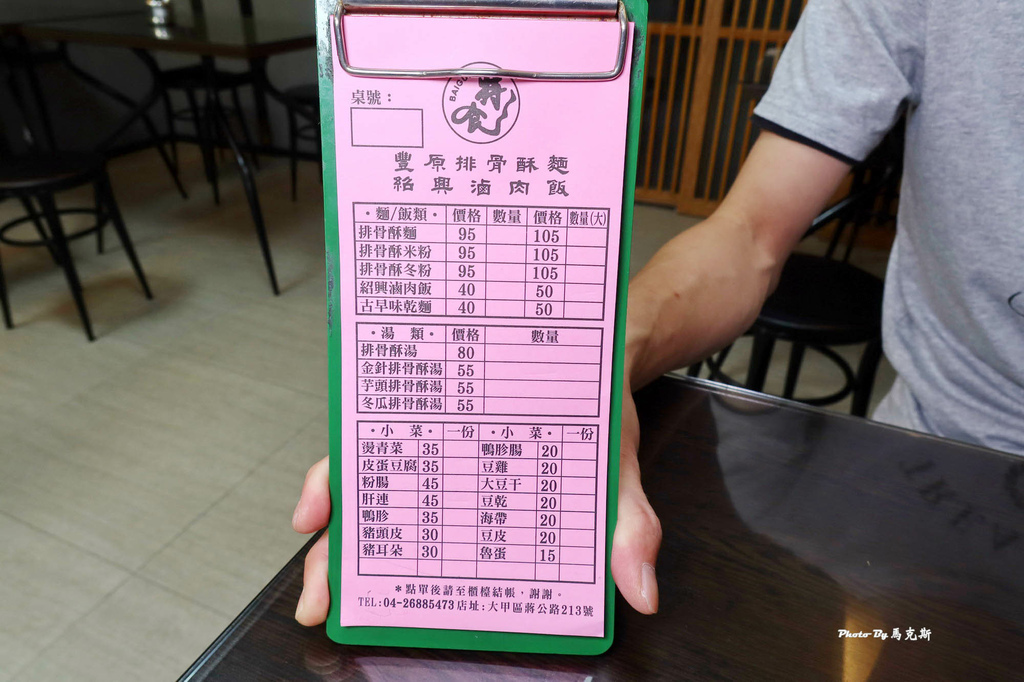 桌號：
豐原排骨酥麵
紹興滷肉飯
・麵/飯類・ 價格 數量 價格 數量(大)
排骨酥麵 95 105
排骨酥米粉 95 105
排骨酥冬粉 95 105
紹興滷肉飯 40 50
古早味乾麵 40 50
・湯 類・ 價格 數量
排骨酥湯 80
金針排骨酥湯 55
芋頭排骨酥湯 55
冬瓜排骨酥湯 55
・小 菜・ 一份 ・小 菜・ 一份
燙青菜 35 鴨胗腸 20
皮蛋豆腐 35 豆雞 20
粉腸 45 大豆干 20
肝連 45 豆乾 20
鴨胗 35 海帶 20
豬頭皮 30 豆皮 20
豬耳朵 30 魯蛋 15
＊點單後請至櫃檯結帳，謝謝。
TEL:04-26885473 店址:大甲區蔣公路213號
Photo By 馬克斯